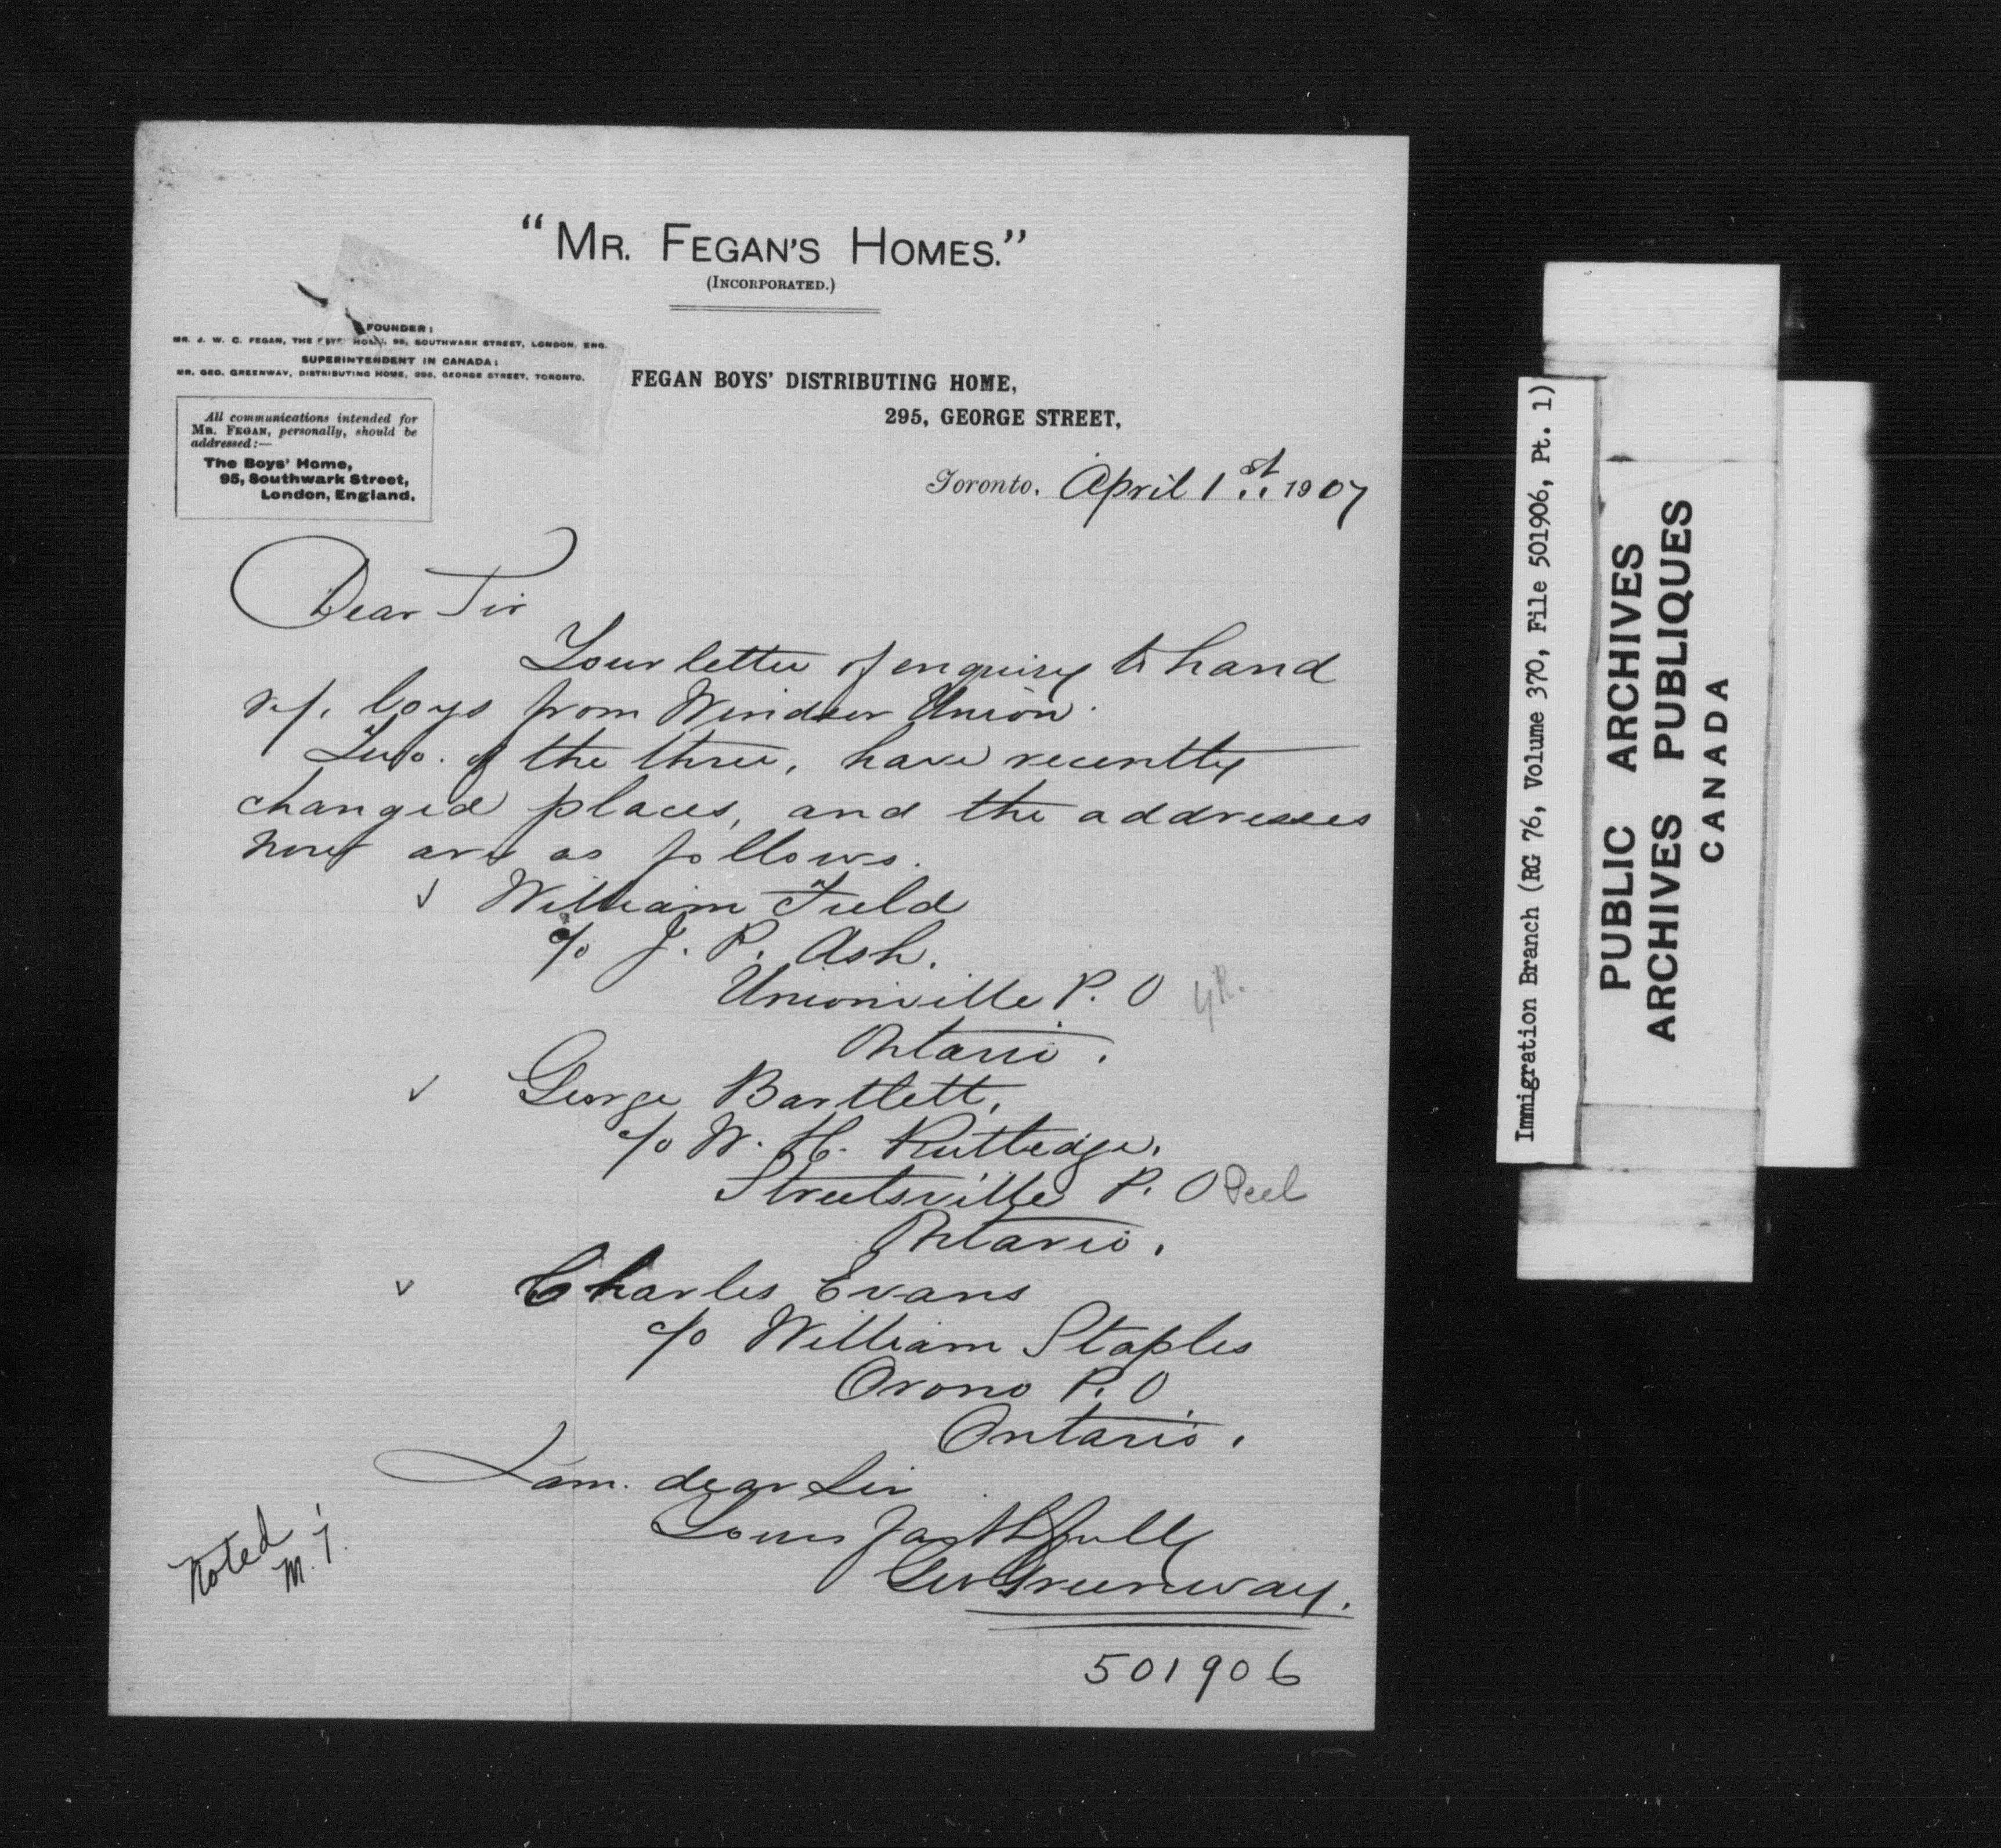 "MR. FEGAN'S HOMES."
(INCORPORATED.)
FOUNDER:
MR. J. W. C. FEGAN, THE BOYS' HOME, 95, SOUTHWARK STREET, LONDON, ENG.
SUPERINTENDENT IN CANADA:
MR. GEO. GREENWAY, DISTRIBUTING HOME, 295, GEORGE STREET, TORONTO.
All communications intended for
MR. FEGAN, personally, should be
addressed:—
The Boys' Home,
95, Southwark Street,
London, England.
FEGAN BOYS' DISTRIBUTING HOME,
295, GEORGE STREET,
Toronto, April 1st 1907
Dear Sir
Your letter of enquiry to hand
ref. boys from Windsor Union.
Two. of the three, have recently
changed places, and the addresses
now are as follows.
✓ William Field
c/o J. P. Ash.
Unionville P. O
Ontario.
✓ George Bartlett,
c/o W. H. Rutledge.
Streetsville P. O Peel
Ontario.
✓ Charles Evans
c/o William Staples
Orono P. O
Ontario.
I am. dear Sir
Yours faithfully
Geo Greenway.
Noted
M. J.
501906
Immigration Branch (RG 76, Volume 370, File 501906, Pt. 1)
PUBLIC ARCHIVES
ARCHIVES PUBLIQUES
CANADA